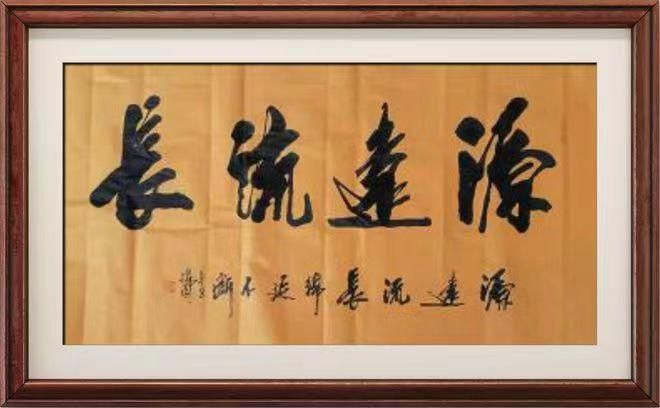 源遠流長
源遠流長綿延不斷